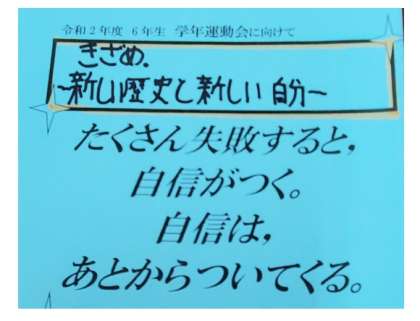 令和2年度 6年生 学年運動会に向けて
きざめ.
~新しい歴史と新しい自分~
たくさん失敗すると,
自信がつく。
自信は,
あとからついてくる。